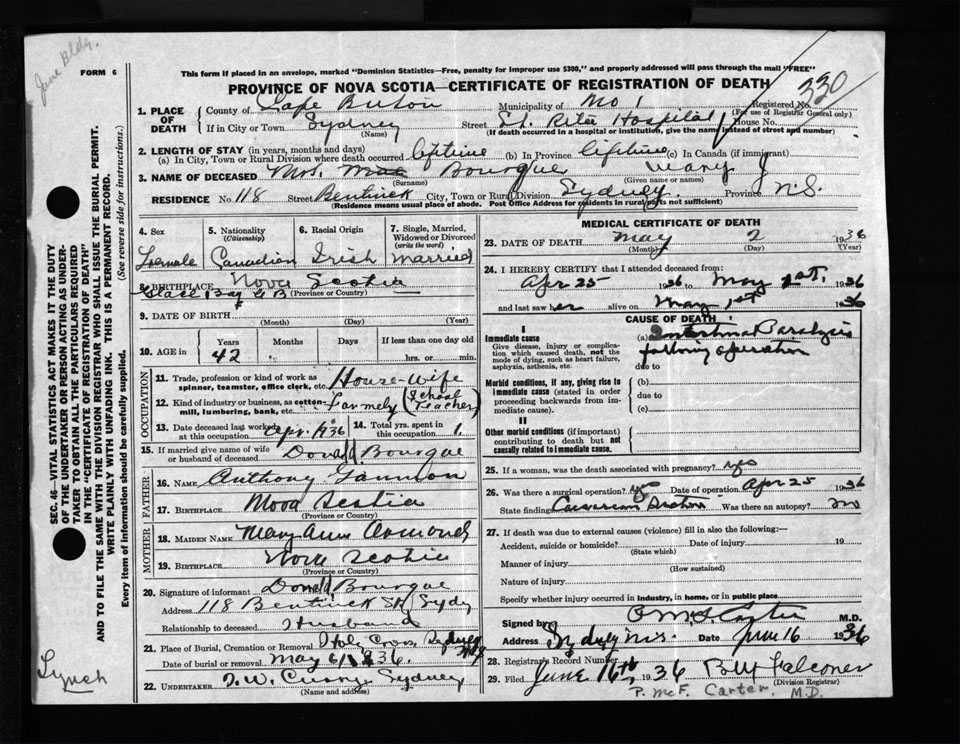 June Bldg.
FORM 6
This form if placed in an envelope, marked "Dominion Statistics—Free, penalty for improper use $300," and properly addressed will pass through the mail "FREE"
PROVINCE OF NOVA SCOTIA—CERTIFICATE OF REGISTRATION OF DEATH
330
1. PLACE OF DEATH
County of Cape Breton Municipality of No 1 Registered No.
(For use of Registrar General only)
If in City or Town Sydney Street St. Rita Hospital House No.
(Name) (If death occurred in a hospital or institution, give the name instead of street and number)
2. LENGTH OF STAY (in years, months and days)
(a) In City, Town or Rural Division where death occurred lifetime (b) In Province lifetime (c) In Canada (if immigrant)
3. NAME OF DECEASED Mrs. Bourque Mary J
(Surname) (Given name or names)
RESIDENCE No. 118 Street Bentinck City, Town or Rural Division Sydney Province N.S.
(Residence means usual place of abode. Post Office Address for residents in rural parts not sufficient)
4. Sex
Female
5. Nationality (Citizenship)
Canadian
6. Racial Origin
Irish
7. Single, Married, Widowed or Divorced (write the word)
Married
8. BIRTHPLACE Nova Scotia
Glace Bay C B (Province or Country)
9. DATE OF BIRTH
(Month) (Day) (Year)
10. AGE in
Years Months Days If less than one day old
42 hrs. or min.
OCCUPATION
11. Trade, profession or kind of work as spinner, teamster, office clerk, etc. House-wife
12. Kind of industry or business, as cotton-mill, lumbering, bank, etc. Formely (School Teacher)
13. Date deceased last worked at this occupation Apr. 1936
14. Total yrs. spent in this occupation 1.
15. If married give name of wife or husband of deceased Donald Bourque
FATHER
16. NAME Anthony Gannon
17. BIRTHPLACE Nova Scotia
(Province or Country)
MOTHER
18. MAIDEN NAME Mary Ann
19. BIRTHPLACE Nova Scotia
(Province or Country)
20. Signature of informant Donald Bourque
Address 118 Bentinck St, Sydy
Relationship to deceased Husband
21. Place of Burial, Cremation or Removal Holy Cross, Sydney
Date of burial or removal May 1936.
22. UNDERTAKER Sydney
(Name and address)
MEDICAL CERTIFICATE OF DEATH
23. DATE OF DEATH May 2 1936
(Month) (Day) (Year)
24. I HEREBY CERTIFY that I attended deceased from:
Apr 25 1936 to May 1st. 1936
and last saw her alive on May 1st 1936
CAUSE OF DEATH
I
Immediate cause
Give disease, injury or complication which caused death, not the mode of dying, such as heart failure, asphyxia, asthenia, etc.
(a) Intestinal Paralysis
following operation
due to
Morbid conditions, if any, giving rise to immediate cause (stated in order proceeding backwards from immediate cause).
(b)
due to
(c)
II
Other morbid conditions (if important) contributing to death but not causally related to immediate cause.
25. If a woman, was the death associated with pregnancy? yes
26. Was there a surgical operation? yes Date of operation Apr 25 1936
State finding Caesarean Section Was there an autopsy? no
27. If death was due to external causes (violence) fill in also the following:—
Accident, suicide or homicide? Date of injury 19
(State which)
Manner of injury
(How sustained)
Nature of injury
Specify whether injury occurred in industry, in home, or in public place
Signed by P McF Carter M.D.
Address Sydney N.S. Date June 16 1936
28. Registrar's Record Number
29. Filed June 16th, 1936 Falconer
(Division Registrar)
P. McF. Carter, M.D.
Lynch
SEC. 46—VITAL STATISTICS ACT MAKES IT THE DUTY
OF THE UNDERTAKER OR PERSON ACTING AS UNDER-
TAKER TO OBTAIN ALL THE PARTICULARS REQUIRED
IN THE "CERTIFICATE OF REGISTRATION OF DEATH"
AND TO FILE THE SAME WITH THE DIVISION REGISTRAR WHO SHALL ISSUE THE BURIAL PERMIT.
WRITE PLAINLY WITH UNFADING INK. THIS IS A PERMANENT RECORD.
Every item of information should be carefully supplied. (See reverse side for instructions.)